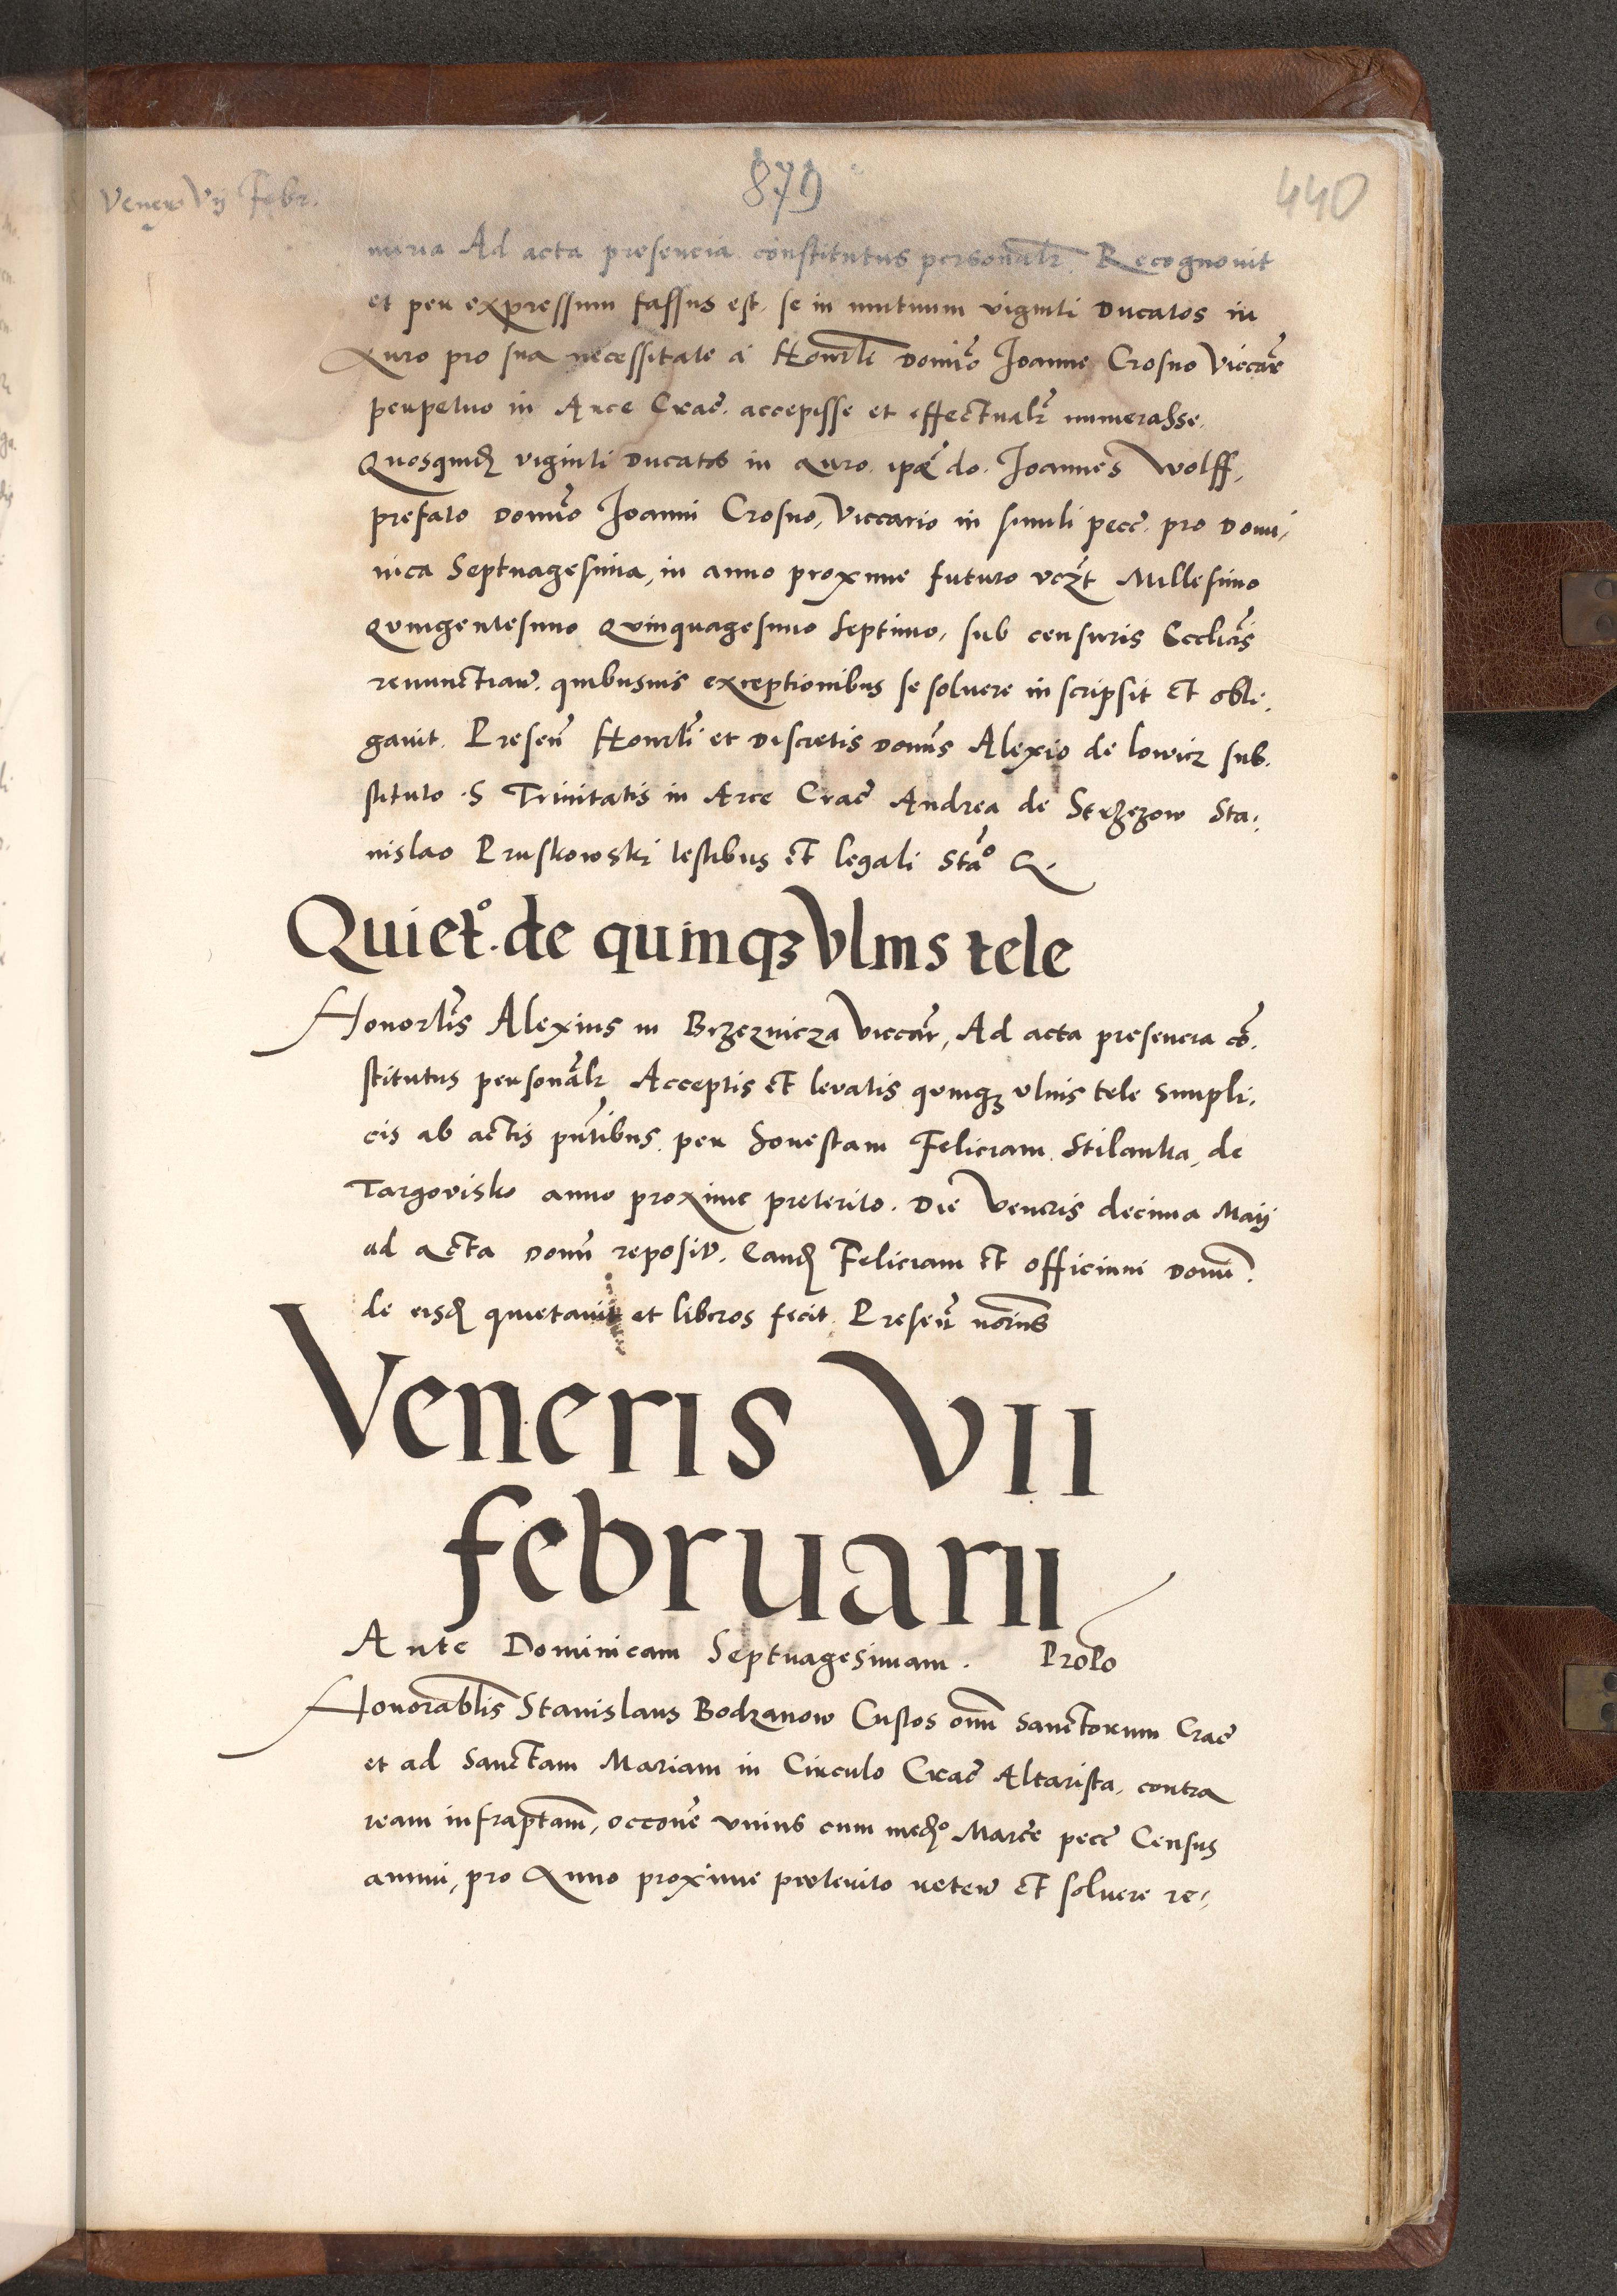 Vener Vij Febr.
879
440
nuria Ad acta presencia constitutus personalr Recognouit
et per expressum fassus est, se in mutuum viginti Ducatos in
Auro pro sua necessitate a Honorli Domīo Joanne Crosno Viccar̄
perpetuo in Arce Crac̄. accepisse et effectualr̄ numerasse.
Quosquid viginti Ducatos in auro ip̄e do. Joannes Wolff,
prefato Domīo Joanni Crosno, Viccario in simili pecc̄. pro Domi,
nica Septuagesima, in anno proxime futuro vcz̄t Millesimo
Quingentesimo Quinquagesimo Septimo, sub censuris Eccl̄icis
renunctian̄. quibusuis exceptionibus se soluere inscripsit et obli,
gauit. Presen̄ Honorl̄i et Discretis Domīs Alexio de Lowicz sub,
stituto .S Trinitatis in Arce Crac̄ Andrea de Strzezow Sta,
nislao Pruskowski testibus et legali Stā°
Quiet°. de quinqȝ Vlnis tele
Honorl̄is Alexius in Brzeznicza Viccar̄, Ad acta presencia cō,
stitutus personālr Acceptis et leuatis quinqȝ vlnis tele simpli,
cis ab actis pn̄tibus. per honestam Feliciam Stilanka, de
Targovisko anno proxime preterito. Die Veneris decima Maij
ad acta Domī reposit̄. Eand Feliciam et officium Domī.
de eisd quietauit et liberos fecit. Presen̄ notariis
Veneris VII
februarii
Ante Dominicam Septuagesimam. Propo
Honorabl̄is Stanislaus Bodzanow Custos om̄i Sanctorum Crac̄
et ad Sanctam Mariam in Circulo Crac̄ Altarista, contra
ream infraptam̄, occone vnius cum med° Marce pecc̄ Census
annui, pro Anno proxime preterito reten̄ et soluere re,